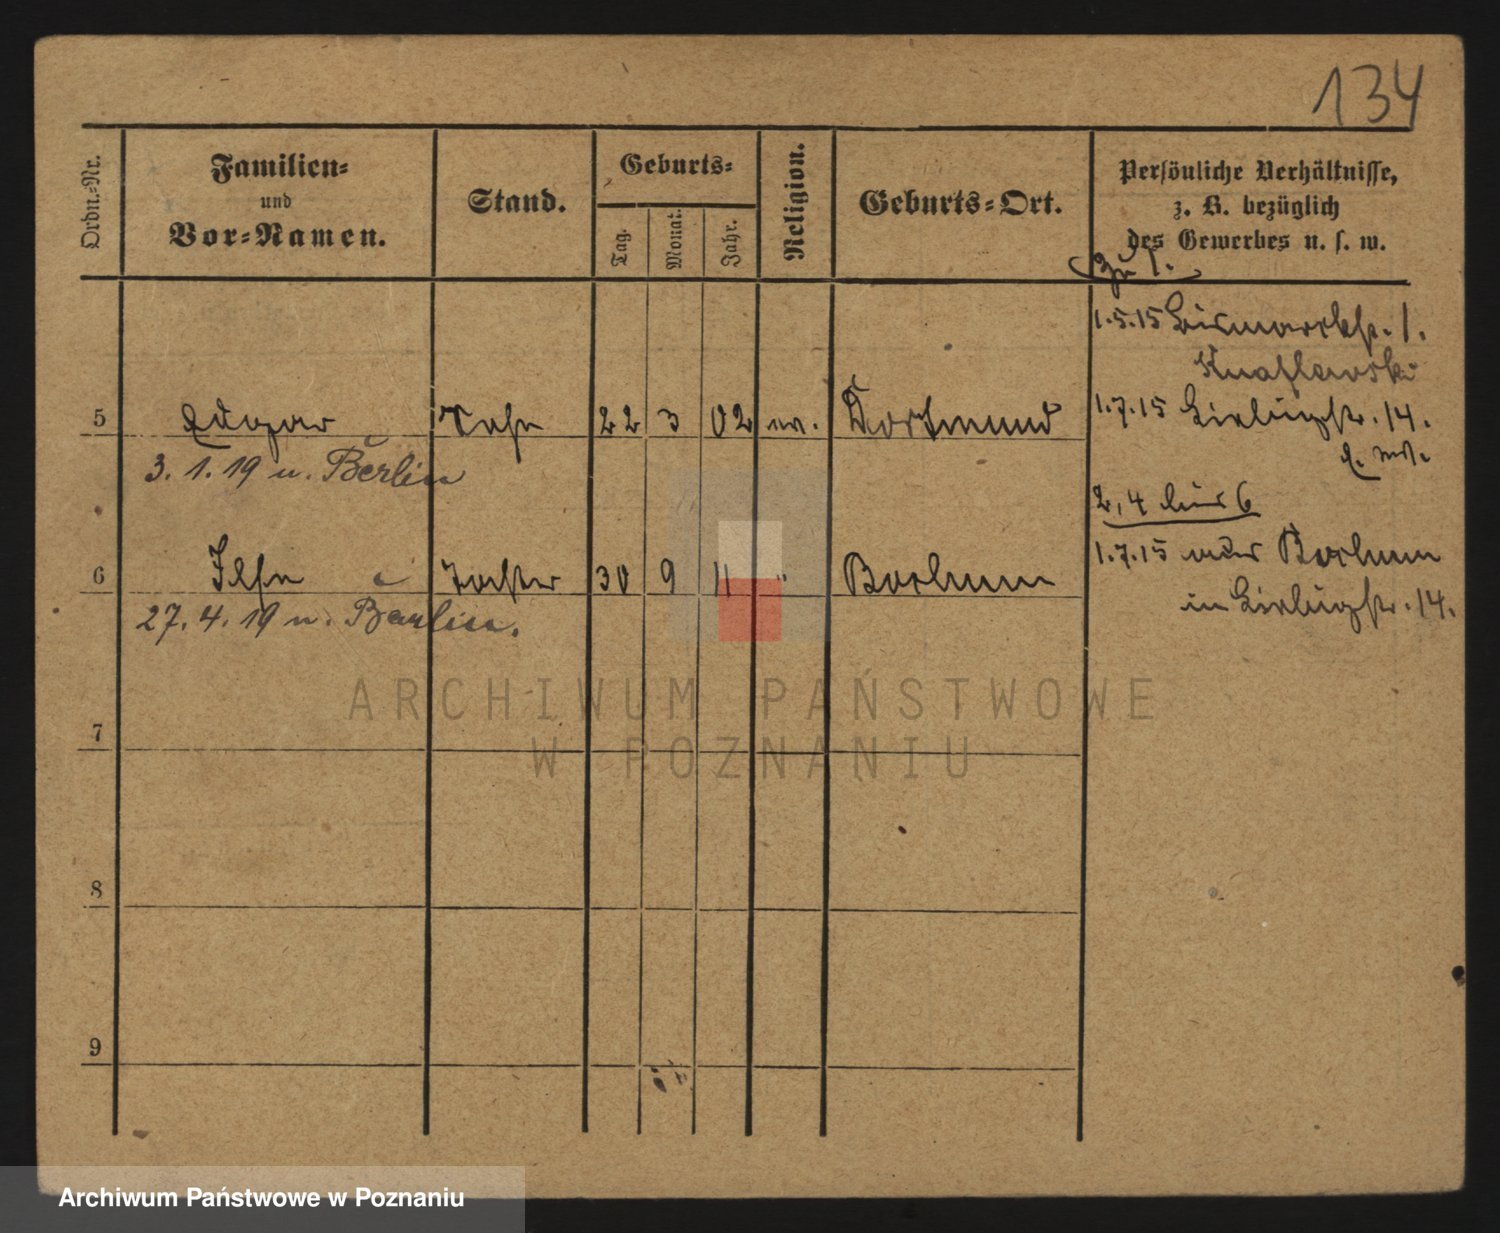 134
Ordn.-Nr.
Familien-
und
Vor-Namen.
Stand.
Geburts-
Tag.
Monat.
Jahr.
Religion.
Geburts-Ort.
Persönliche Verhältnisse,
z. B. bezüglich
des Gewerbes u. s. w.
zu 1.
1.5.15 Bismarckstr. 1.
1.7.15 Liebigstr. 14.
5 Edgar Sohn 22 3 02 ev. Dortmund
3. 1. 19 n. Berlin
2, 4 bis 6
1.7.15 aus Bochum
in Liebigstr. 14.
6 Ilse Tochter 30 9 11 " Bochum
27. 4. 19 n. Berlin.
7
8
9
ARCHIWUM PAŃSTWOWE
W POZNANIU
Archiwum Państwowe w Poznaniu